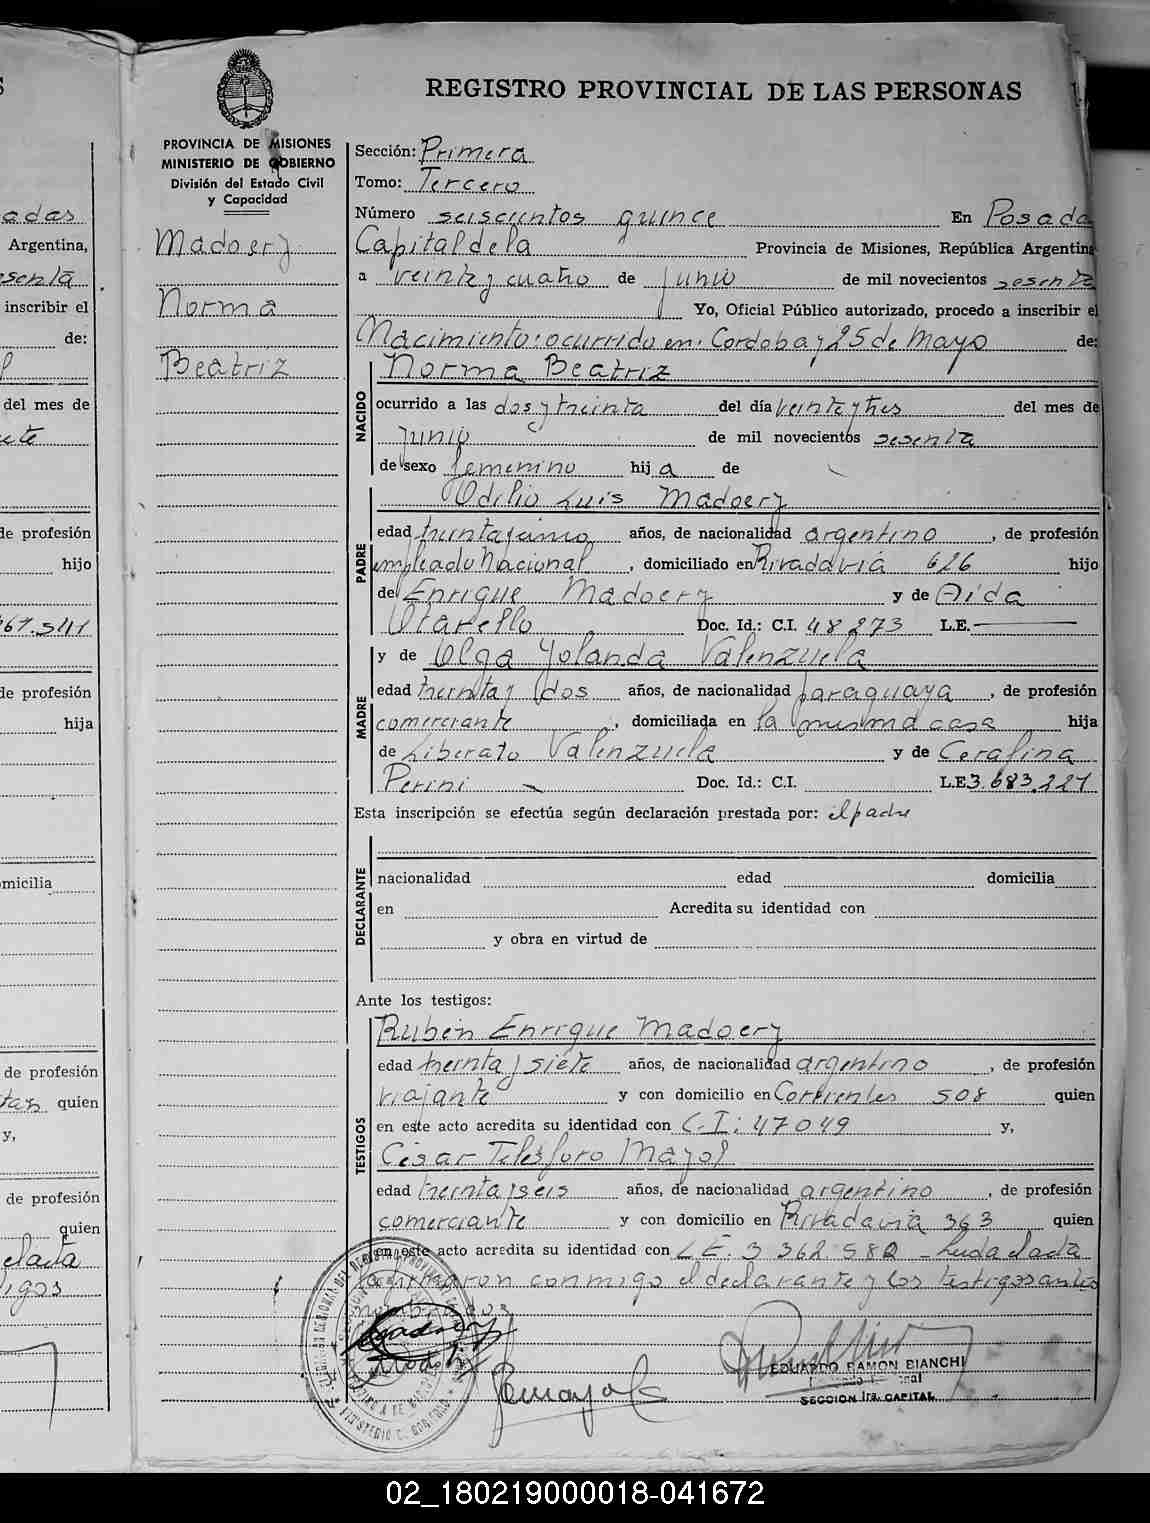 REGISTRO PROVINCIAL DE LAS PERSONAS
PROVINCIA DE MISIONES
MINISTERIO DE GOBIERNO
División del Estado Civil
y Capacidad
Madoery
Norma
Beatriz
Sección: Primera
Tomo: Tercero
Número seiscientos quince En Posada
Capital de la Provincia de Misiones, República Argentina
a veinte y cuatro de junio de mil novecientos sesenta
Yo, Oficial Público autorizado, procedo a inscribir el
Nacimiento: ocurrido en: Cordoba y 25 de Mayo de:
NACIDO
Norma Beatriz
ocurrido a las dos y treinta del día veinte y tres del mes de
junio de mil novecientos sesenta
de sexo femenino hija de
PADRE
Odilio Luis Madoery
edad treinta y cinco años, de nacionalidad argentino, de profesión
empleado Nacional, domiciliado en Rivadavia 626 hijo
de Enrique Madoery y de Aida
Otarello Doc. Id.: C.I. 48273 L.E.
MADRE
y de Olga Yolanda Valenzuela
edad treinta y dos años, de nacionalidad paraguaya, de profesión
comerciante, domiciliada en la misma casa hija
de Liberato Valenzuela y de Cerafina
Perini Doc. Id.: C.I. L.E 3.683.221
Esta inscripción se efectúa según declaración prestada por: el padre
DECLARANTE
nacionalidad edad domicilia
en Acredita su identidad con
y obra en virtud de
Ante los testigos:
TESTIGOS
Rubén Enrique Madoery
edad treinta y siete años, de nacionalidad argentino, de profesión
viajante y con domicilio en Corrientes 508 quien
en este acto acredita su identidad con C.I: 47049 y,
César Telésforo Mayol
edad treinta y seis años, de nacionalidad argentino, de profesión
comerciante y con domicilio en Rivadavia 363 quien
en este acto acredita su identidad con L.E. 3 362 582 - Leida el acta
la firmaron conmigo el declarante y los testigos antes
nombrados
EDUARDO RAMON BIANCHI
SECCION 1ra. CAPITAL
adas
Argentina,
esenta
inscribir el
de:
del mes de
de profesión
hijo
67.541
de profesión
hija
omicilia
de profesión
quien
y,
de profesión
quien
el acta
igos
02_180219000018-041672